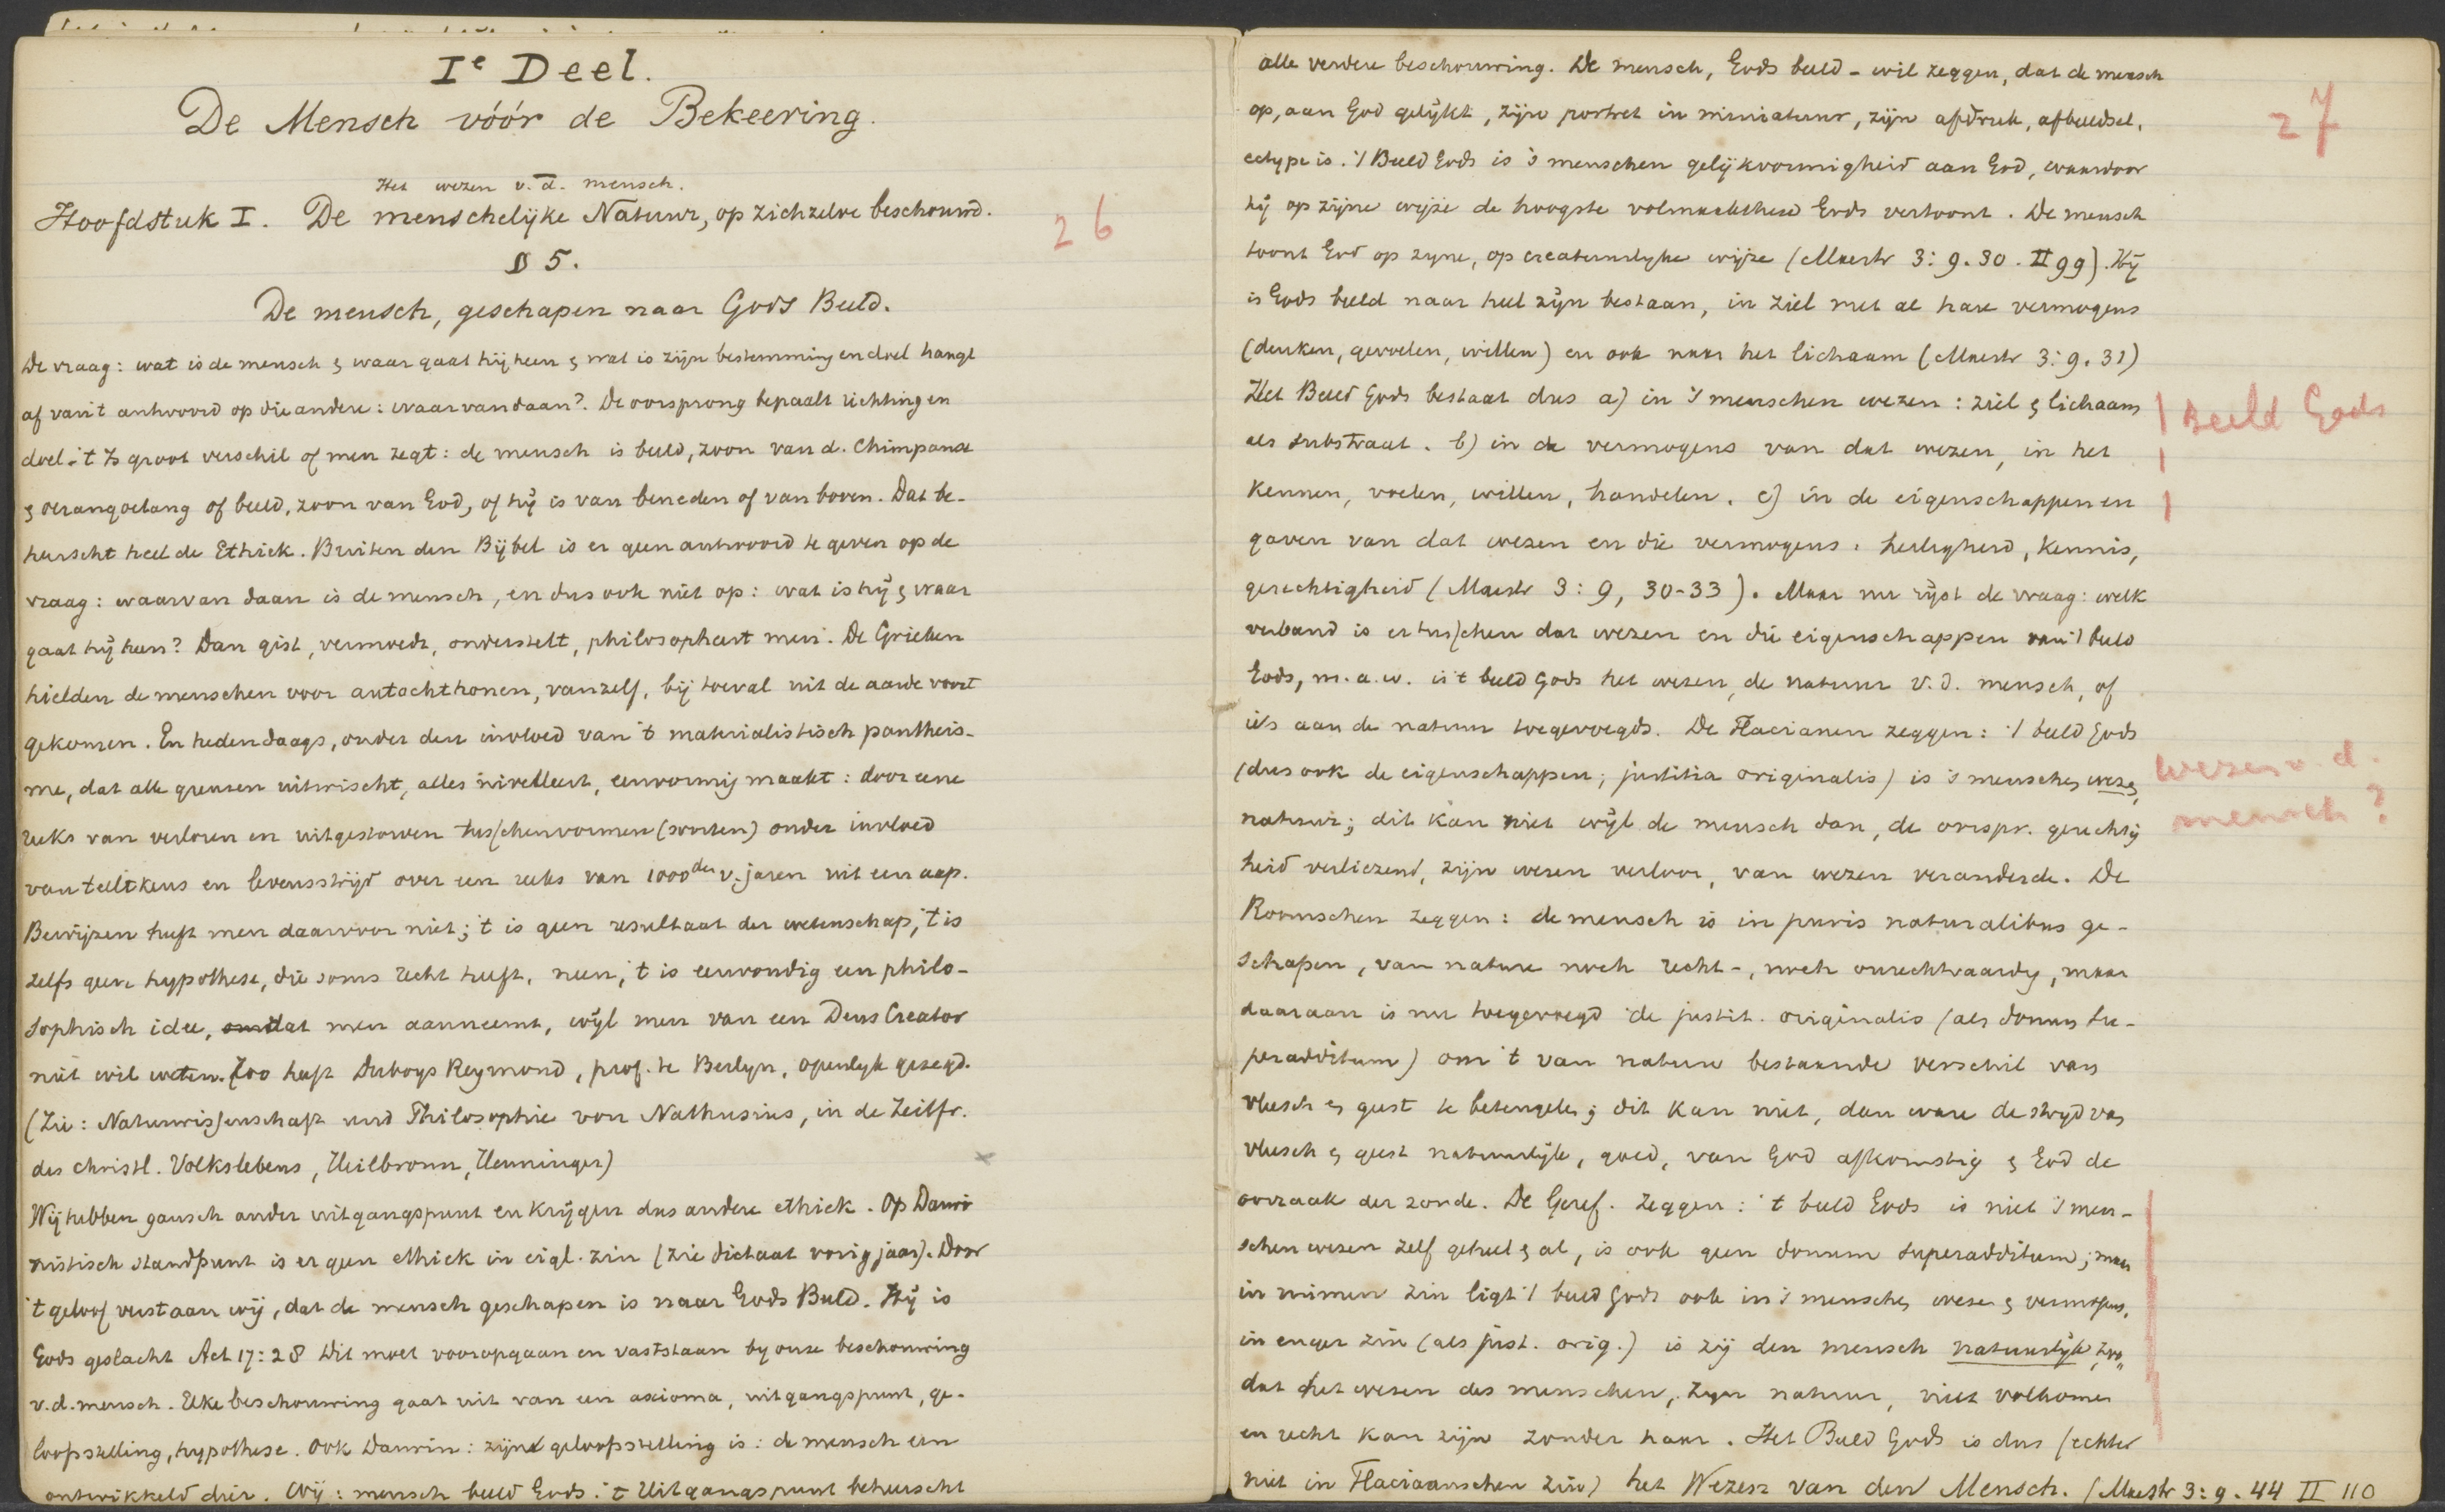 Ie Deel.
De Mensch vóór de Bekeering.
Het wezen v. d. mensch.
Hoofdstuk I. De menschelijke Natuur, op zichzelve beschouwd.
26
§ 5.
De mensch, geschapen naar Gods Beeld.
De vraag: wat is de mensch & waar gaat hij heen & wat is zijn bestemming en doel hangt
af van 't antwoord op die andere: waar vandaan?. De oorsprong bepaalt richting en
doel. 't Is groot verschil of men zegt: de mensch is beeld, zoon van d. Chimpansé
& oerangoetang of beeld, zoon van God, of hij is van beneden of van boven. Dat be-
heerscht heel de Ethiek. Buiten den Bijbel is er geen antwoord te geven op de
vraag: waarvan daan is de mensch, en dus ook niet op: wat is hij & waar
gaat hij heen? Dan gist, vermoedt, onderstelt, philosopheert men. De Grieken
hielden de menschen voor autochthonen, vanzelf, bij toeval uit de aarde voort
gekomen. En hedendaags, onder den invloed van 't materialistisch pantheis-
me, dat alle grenzen uitwischt, alles nivelleert, eenvormig maakt: door eene
reeks van verloren en uitgestorven tusschenvormen (soorten) onder invloed
van teeltkeus en levensstrijd over een reeks van 1000den v. jaren uit een aap.
Bewijzen heeft men daarvoor niet; 't is geen resultaat der wetenschap, 't is
zelfs geen hypothese, die soms recht heeft, neen, 't is eenvoudig een philo-
sophisch idee, omdat men aanneemt, wijl men van een Deus Creator
niet wil weten. Zoo heeft Duboys Reymond, prof. te Berlyn, openlyk gezegd.
(Zie: Naturwissenschaft und Philosophie von Nathusius, in de Zeitfr.
des christl. Volkslebens, Heilbronn, Henninger)
Wij hebben gansch ander uitgangspunt en krijgen dus andere ethiek. Op Darwi
nistisch standpunt is er geen ethiek in eigl. zin (zie dictaat vorig jaar). Door
't geloof verstaan wij, dat de mensch geschapen is naar Gods Beeld. Hij is
Gods geslacht Act 17:28 Dit moet vooropgaan en vaststaan by onze beschouwing
v. d. mensch. Elke beschouwing gaat uit van een axioma, uitgangspunt, ge-
loofsstelling, hypothese. Ook Darwin: zijne geloofsstelling is: de mensch een
ontwikkeld dier. Wij: mensch beeld Gods. 't Uitgangspunt beheerscht
27
alle verdere beschouwing. De mensch, Gods beeld - wil zeggen, dat de mensch
op, aan God gelijkt, zijn portret in miniatuur, zijn afdruk, afbeeldsel,
ectype is. 't Beeld Gods is 's menschen gelijkvormigheid aan God, waardoor
hij op zijne wijze de hoogste volmaaktheid Gods vertoont. De mensch
toont God op zyne, op creatuurlyke wijze (Maestr 3:9.30. II 99). Hij
is Gods beeld naar heel zijn bestaan, in ziel met al hare vermogens
(denken, gevoelen, willen) en ook naar het lichaam (Maestr 3:9.31)
Het Beeld Gods bestaat dus a) in 's menschen wezen: ziel & lichaam
als substraat. b) in de vermogens van dat wezen, in het
kennen, voelen, willen, handelen. c) in de eigenschappen en
gaven van dat wezen en die vermogens: heiligheid, kennis,
gerechtigheid (Maestr 3:9, 30-33). Maar nu rijst de vraag: welk
verband is er tusschen dat wezen en die eigenschappen van 't beeld
Gods, m. a. w. is 't beeld Gods het wezen, de natuur v. d. mensch, of
iets aan de natuur toegevoegds. De Flacianen zeggen: 't beeld Gods
(dus ook de eigenschappen; justitia originalis) is 's menschen wezen,
natuur; dit kan niet wijl de mensch dan, de oorspr. gerechtig
heid verliezend, zijn wezen verloor, van wezen veranderde. De
Roomschen zeggen: de mensch is in puris naturalibus ge-
schapen, van nature noch recht-, noch onrechtvaardig, maar
daaraan is nu toegevoegd de justit. originalis (als donum su-
peradditum) om 't van nature bestaande verschil van
vleesch & geest te beteugelen; dit kan niet, dan ware de strijd van
vleesch & geest natuurlijk, goed, van God afkomstig & God de
oorzaak der zonde. De Geref. zeggen: 't beeld Gods is niet 's men-
schen wezen zelf geheel & al, is ook geen donum superadditum; maar
in ruimen zin ligt 't beeld Gods ook in 's menschen wezen & vermogens,
in enger zin (als just. orig.) is zij den mensch natuurlijk, zoo
dat het wezen des menschen, zijn natuur, niet volkomen
en recht kan zijn zonder haar. Het Beeld Gods is dus (echter
niet in Flaciaanschen zin) het Wezen van den Mensch. (Maestr 3:9.44 II 110
Beeld Gods
Wezen v. d.
mensch?